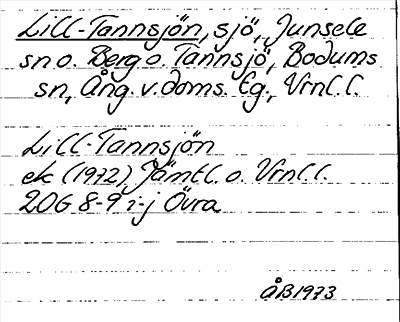 Lill-Tannsjön, sjö, Junsele
sn o. Berg o. Tannsjö, Bodums
sn, Ång. v. doms. tg., Vrnl. l.
Lill-Tannsjön
ek (1972) Jämtl. o. Vrnl. l.
20G 8-9 i-j Övra
ÅB1973